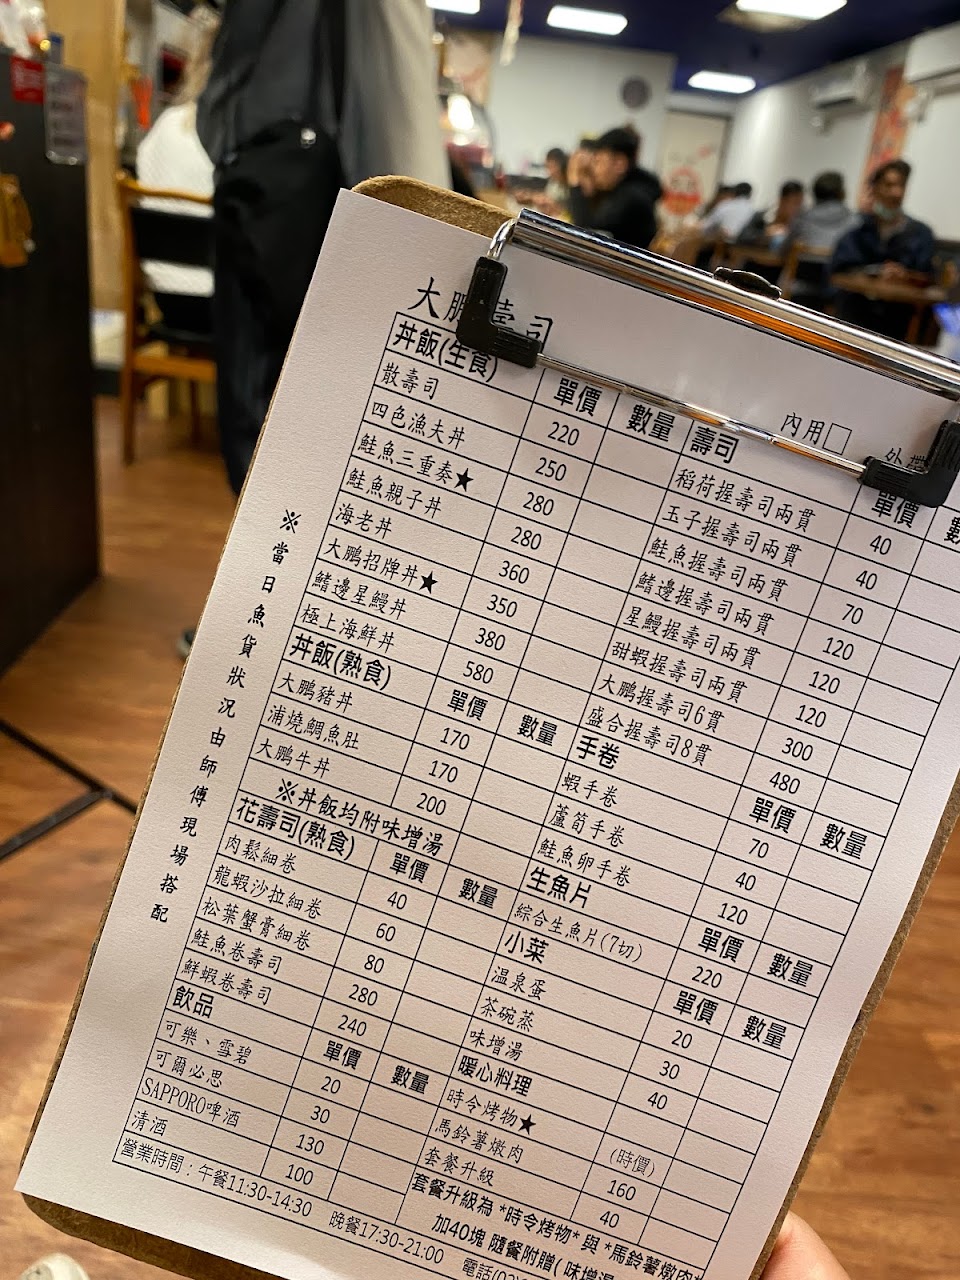 大鵬壽司
內用□
丼飯(生食) 單價 數量
散壽司 220
四色漁夫丼 250
鮭魚三重奏★ 280
鮭魚親子丼 280
海老丼 360
大鵬招牌丼★ 350
鰭邊星鰻丼 380
極上海鮮丼 580
丼飯(熟食) 單價 數量
大鵬豬丼 170
浦燒鯛魚肚 170
大鵬牛丼 200
※丼飯均附味增湯
花壽司(熟食) 單價 數量
肉鬆細卷 40
龍蝦沙拉細卷 60
松葉蟹膏細卷 80
鮭魚卷壽司 280
鮮蝦卷壽司 240
飲品 單價 數量
可樂、雪碧 20
可爾必思 30
SAPPORO啤酒 130
清酒 100
營業時間：午餐11:30-14:30 晚餐17:30-21:00
壽司 單價
稻荷握壽司兩貫 40
玉子握壽司兩貫 40
鮭魚握壽司兩貫 70
鰭邊握壽司兩貫 120
星鰻握壽司兩貫 120
甜蝦握壽司兩貫 120
大鵬握壽司6貫 300
盛合握壽司8貫 480
手卷 單價 數量
蝦手卷 70
蘆筍手卷 40
鮭魚卵手卷 120
生魚片 單價 數量
綜合生魚片(7切) 220
小菜 單價 數量
溫泉蛋 20
茶碗蒸 30
味增湯 40
暖心料理
時令烤物★ (時價)
馬鈴薯燉肉 160
套餐升級 40
套餐升級為 *時令烤物* 與 *馬鈴薯燉肉*
加40塊 隨餐附贈( 味增湯
※當日魚貨狀況由師傅現場搭配